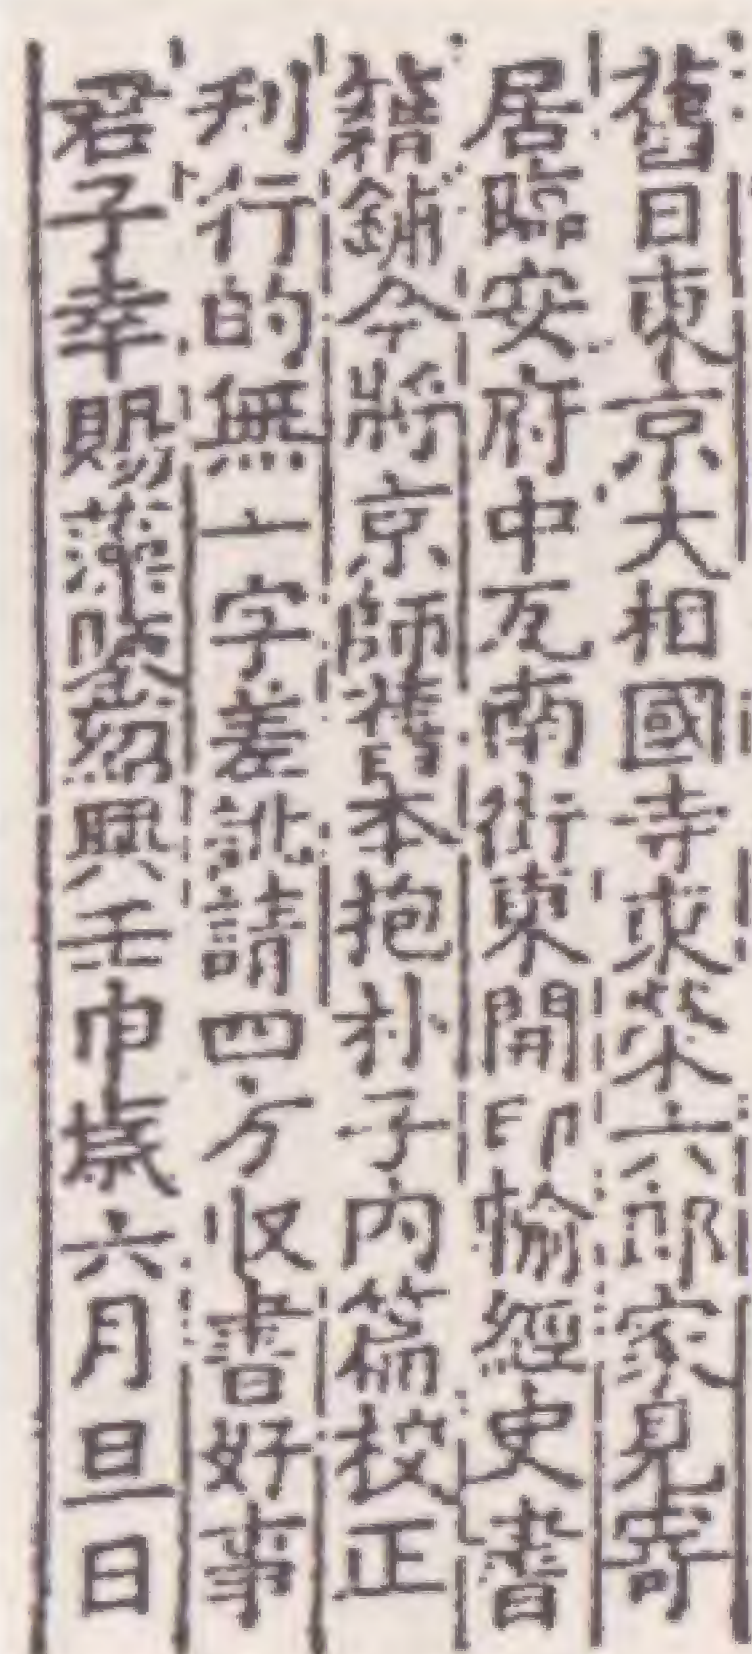 舊日東京大相國寺東榮六郎家見寄
居臨安府中瓦南街東開印輸經史書
籍鋪今將京師舊本抱朴子內篇校正
刋行的無一字差訛請四方收書好事
君子幸賜藻鑒紹興壬申歲六月旦日